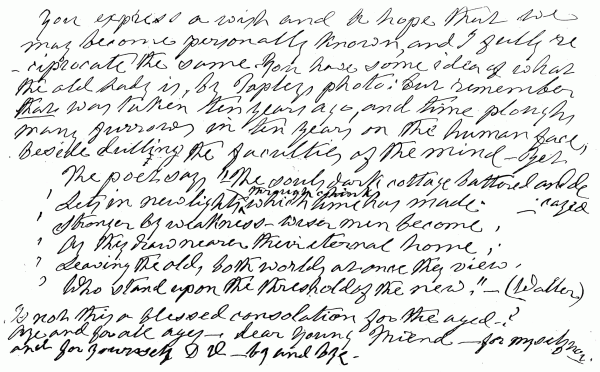 You express a wish and a hope that we
may become personally known, and I fully re
-ciprocate the same. You have some idea of what
the old lady is, by Tapley's photo: But remember
that was taken ten years ago, and time ploughs
many furrows in ten years on the human face,
beside dulling the faculties of the mind - yet
The poet says "The soul's dark cottage battered and de
' Lets in new light through chinks which time has made. - cayed
' Stronger by weakness - wiser men become,
' As they draw nearer their eternal home;
' Leaving the old, both worlds at once they view.
' Who stand upon the threshold of the new." - (Waller)
Is not this a blessed consolation for the aged - ?
Aye and for all ages - dear young Friend - for myself now.
and for yourself D.V. - by and bye.